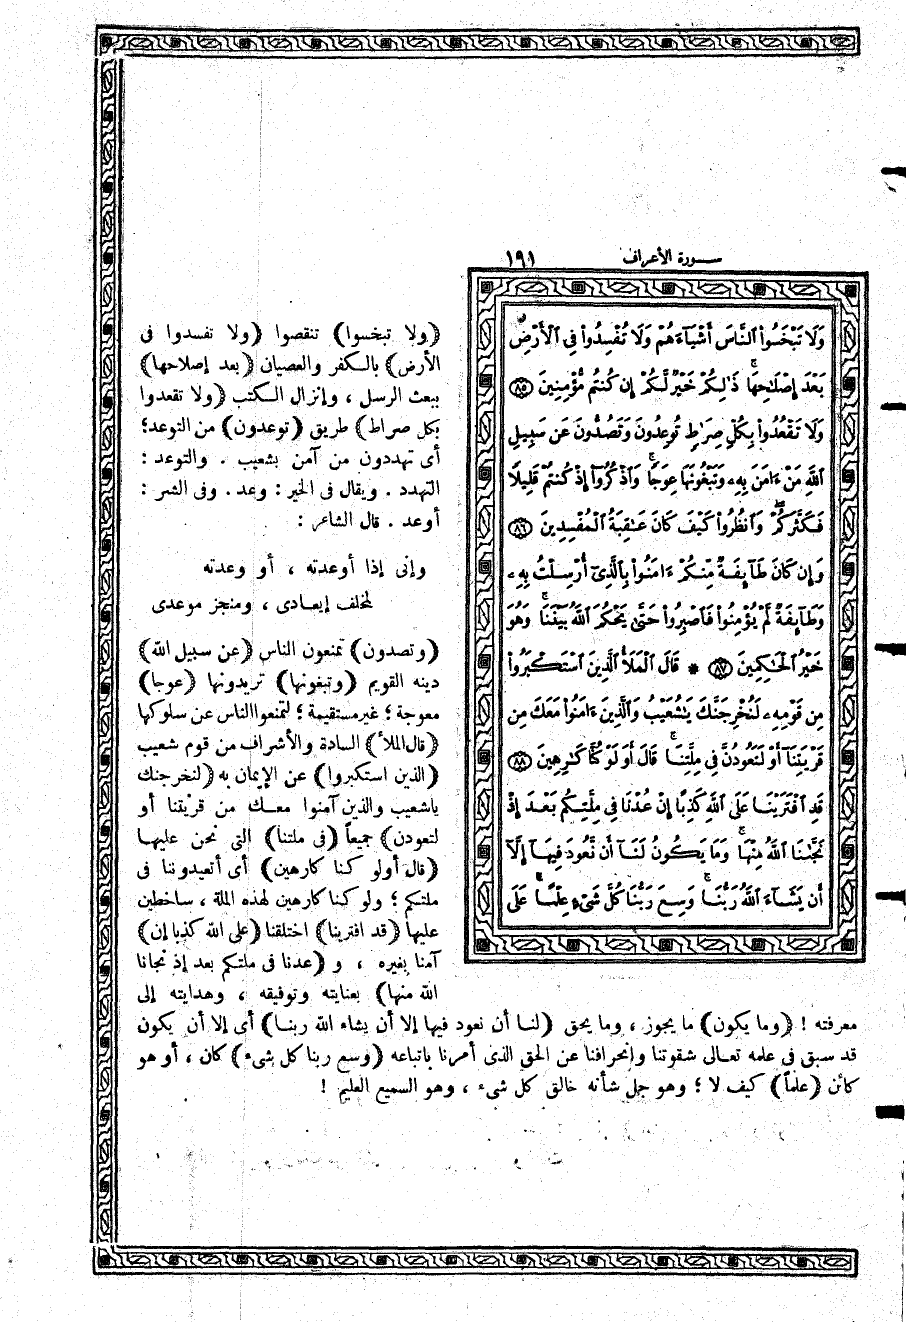 سورة الأعراف ١٩١
وَلَا تَبْخَسُوا۟ ٱلنَّاسَ أَشْيَآءَهُمْ وَلَا تُفْسِدُوا۟ فِى ٱلْأَرْضِ
بَعْدَ إِصْلَٰحِهَا ۚ ذَٰلِكُمْ خَيْرٌ لَّكُمْ إِن كُنتُم مُّؤْمِنِينَ ٨٥
وَلَا تَقْعُدُوا۟ بِكُلِّ صِرَٰطٍ تُوعِدُونَ وَتَصُدُّونَ عَن سَبِيلِ
ٱللَّهِ مَنْ ءَامَنَ بِهِۦ وَتَبْغُونَهَا عِوَجًا ۚ وَٱذْكُرُوٓا۟ إِذْ كُنتُمْ قَلِيلًا
فَكَثَّرَكُمْ ۖ وَٱنظُرُوا۟ كَيْفَ كَانَ عَٰقِبَةُ ٱلْمُفْسِدِينَ ٨٦
وَإِن كَانَ طَآئِفَةٌ مِّنكُمْ ءَامَنُوا۟ بِٱلَّذِىٓ أُرْسِلْتُ بِهِۦ
وَطَآئِفَةٌ لَّمْ يُؤْمِنُوا۟ فَٱصْبِرُوا۟ حَتَّىٰ يَحْكُمَ ٱللَّهُ بَيْنَنَا ۚ وَهُوَ
خَيْرُ ٱلْحَٰكِمِينَ ٨٧ * قَالَ ٱلْمَلَأُ ٱلَّذِينَ ٱسْتَكْبَرُوا۟
مِن قَوْمِهِۦ لَنُخْرِجَنَّكَ يَٰشُعَيْبُ وَٱلَّذِينَ ءَامَنُوا۟ مَعَكَ مِن
قَرْيَتِنَآ أَوْ لَتَعُودُنَّ فِى مِلَّتِنَا ۚ قَالَ أَوَلَوْ كُنَّا كَٰرِهِينَ ٨٨
قَدِ ٱفْتَرَيْنَا عَلَى ٱللَّهِ كَذِبًا إِنْ عُدْنَا فِى مِلَّتِكُم بَعْدَ إِذْ
نَجَّىٰنَا ٱللَّهُ مِنْهَا ۚ وَمَا يَكُونُ لَنَآ أَن نَّعُودَ فِيهَآ إِلَّآ
أَن يَشَآءَ ٱللَّهُ رَبُّنَا ۚ وَسِعَ رَبُّنَا كُلَّ شَىْءٍ عِلْمًا ۚ عَلَى
(ولا تبخسوا) تنقصوا (ولا تفسدوا فى
الأرض) بالكفر والعصيان (بعد إصلاحها)
ببعث الرسل ، وإنزال الكتب (ولا تقعدوا
بكل صراط) طريق (توعدون) من التوعد؛
أى تهددون من آمن بشعيب . والتوعد :
التهدد . ويقال فى الخير : وعد . وفى الشر :
أوعد . قال الشاعر :
وإنى إذا أوعدته ، أو وعدته
لمخلف إيعادى ، ومنجز موعدى
(وتصدون) تمنعون الناس (عن سبيل الله)
دينه القويم (وتبغونها) تريدونها (عوجا)
معوجة ؛ غير مستقيمة ؛ لتمنعوا الناس عن سلوكها
(قال الملأ) السادة والأشراف من قوم شعيب
(الذين استكبروا) عن الإيمان به (لنخرجنك
ياشعيب والذين آمنوا معك من قريتنا أو
لتعودن) جميعاً (فى ملتنا) التى نحن عليها
(قال أولو كنا كارهين) أى أتعيدوننا فى
ملتكم ؛ ولو كنا كارهين لهذه الملة ، ساخطين
عليها (قد افترينا) اختلقنا (على الله كذبا إن)
آمنا بغيره ، و (عدنا فى ملتكم بعد إذ نجانا
الله منها) بعنايته وتوفيقه ، وهدايته إلى
معرفته ! (وما يكون) ما يجوز ، وما يحق (لنا أن نعود فيها إلا أن يشاء الله ربنا) أى إلا أن يكون
قد سبق فى علمه تعالى شقوتنا وانحرافنا عن الحق الذى أمرنا باتباعه (وسع ربنا كل شىء) كان ، أو هو
كائن (علماً) كيف لا ؛ وهو جل شأنه خالق كل شىء ، وهو السميع العليم !